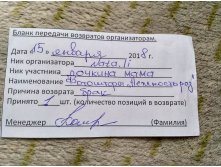 Бланк передачи возвратов организаторам.
Дата 15 января 2018 г.
Ник организатора Nata.Ti
Ник участника дочкина мама
Наименование Фотошторы
Причина возврата брак
Принято 1 шт. (количество позиций в возврате)
Менеджер (Фамилия)